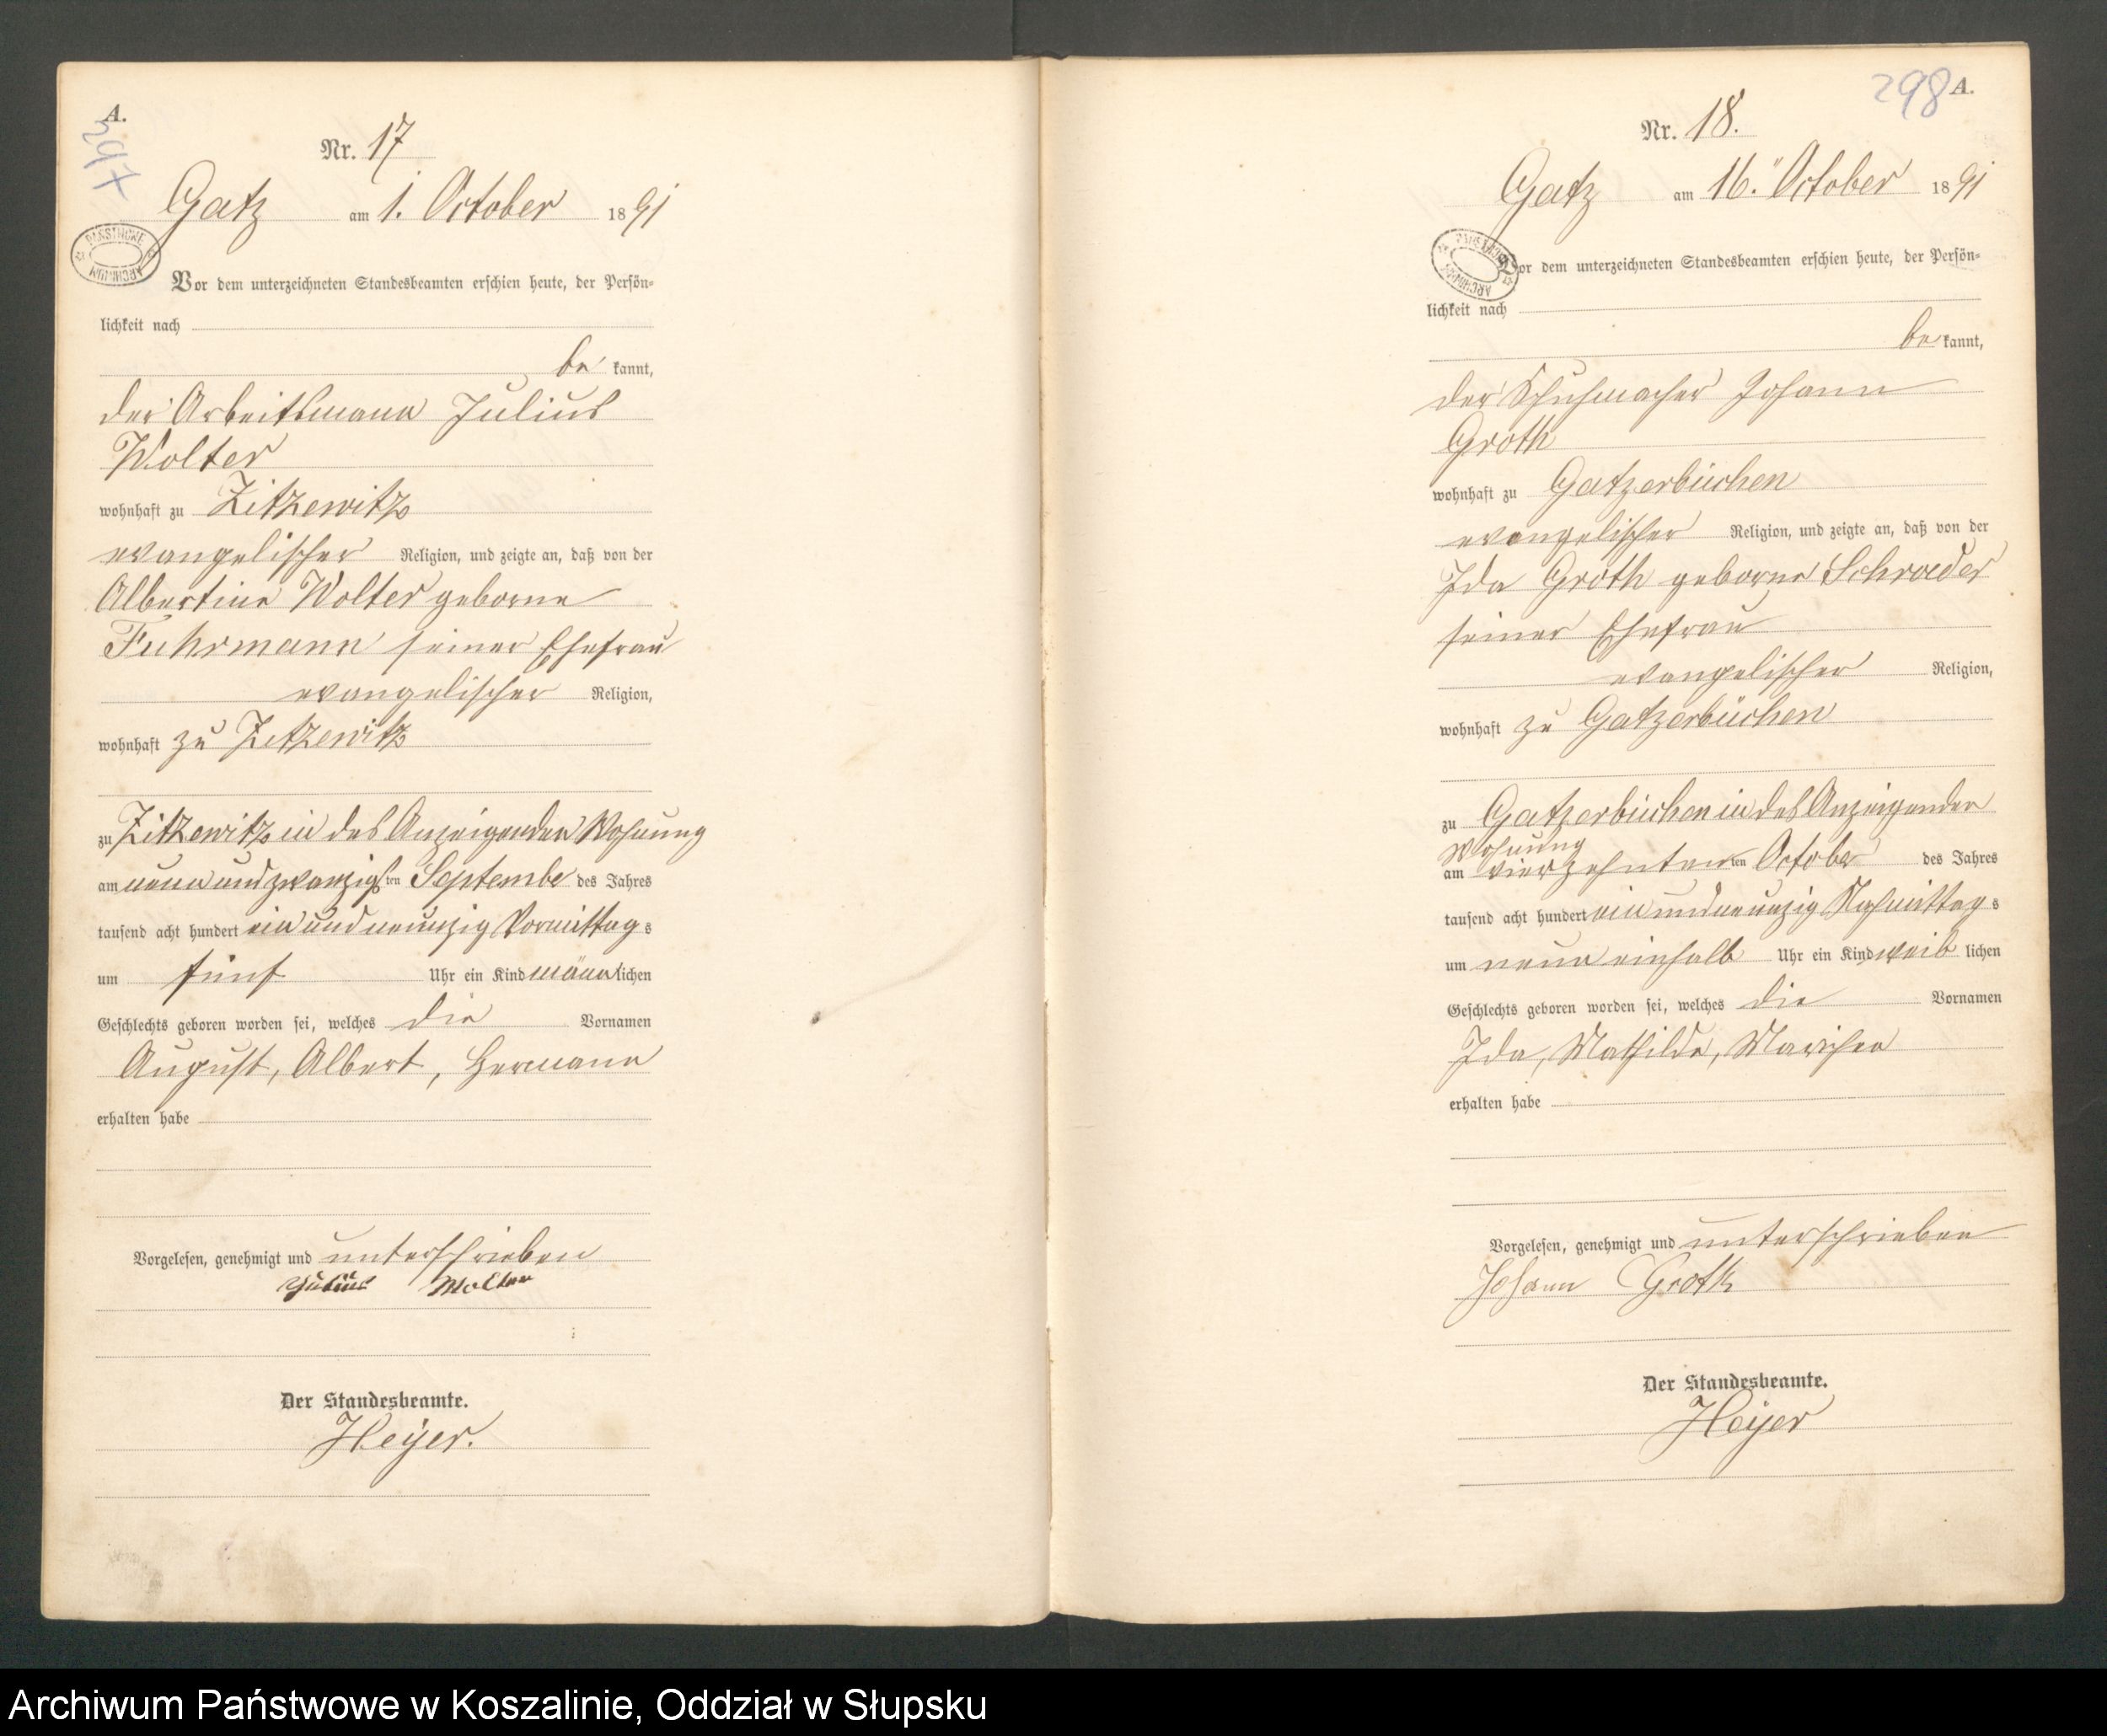 A.
297
Nr. 17
Gatz am 1. October 1891
PAŃSTWOWE ARCHIWUM
Vor dem unterzeichneten Standesbeamten erschien heute, der Persön-
lichkeit nach
be kannt,
der Arbeitsmann Julius
Wolter
wohnhaft zu Zitzewitz
evangelischer Religion, und zeigte an, daß von der
Albertine Wolter geborne
Fuhrmann seiner Ehefrau
evangelischer Religion,
wohnhaft zu Zitzewitz
zu Zitzewitz in des Anzeigenden Wohnung
am neun und zwanzigsten September des Jahres
tausend acht hundert ein und neunzig Vormittags
um fünf Uhr ein Kind männlichen
Geschlechts geboren worden sei, welches die Vornamen
August, Albert, Hermann
erhalten habe
Vorgelesen, genehmigt und unterschrieben
Julius Wolter
Der Standesbeamte.
Heyer.
298 A.
Nr. 18.
Gatz am 16. October 1891
PAŃSTWOWE ARCHIWUM
Vor dem unterzeichneten Standesbeamten erschien heute, der Persön-
lichkeit nach
be kannt,
der Schuhmacher Johann
Groth
wohnhaft zu Gatzerbüchen
evangelischer Religion, und zeigte an, daß von der
Ida Groth geborne Schroeder
seiner Ehefrau
evangelischer Religion,
wohnhaft zu Gatzerbüchen
zu Gatzerbüchen in des Anzeigenden
Wohnung
am vierzehnten ten October des Jahres
tausend acht hundert ein und neunzig Nachmittags
um neun einhalb Uhr ein Kind weiblichen
Geschlechts geboren worden sei, welches die Vornamen
Ida, Mathilde, Mariechen
erhalten habe
Vorgelesen, genehmigt und unterschrieben
Johann Groth
Der Standesbeamte.
Heyer
Archiwum Państwowe w Koszalinie, Oddział w Słupsku